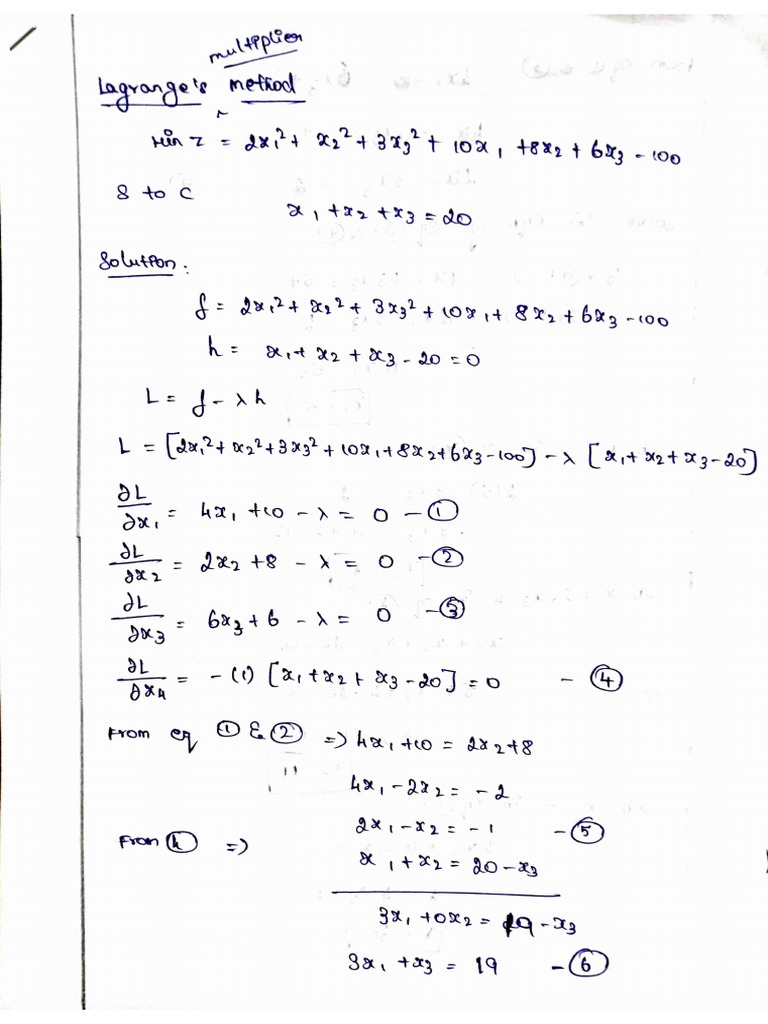 multiplier
Lagrange's method
Min Z = 2x₁² + x₂² + 3x₃² + 10x₁ + 8x₂ + 6x₃ - 100
S to C
x₁ + x₂ + x₃ = 20
Solution:
f = 2x₁² + x₂² + 3x₃² + 10x₁ + 8x₂ + 6x₃ - 100
h = x₁ + x₂ + x₃ - 20 = 0
L = f - λh
L = [2x₁² + x₂² + 3x₃² + 10x₁ + 8x₂ + 6x₃ - 100] - λ [x₁ + x₂ + x₃ - 20]
∂L/∂x₁ = 4x₁ + 10 - λ = 0 - ①
∂L/∂x₂ = 2x₂ + 8 - λ = 0 - ②
∂L/∂x₃ = 6x₃ + 6 - λ = 0 - ③
∂L/∂x₄ = -(1) [x₁ + x₂ + x₃ - 20] = 0 - ④
From eq ① & ② => 4x₁ + 10 = 2x₂ + 8
4x₁ - 2x₂ = -2
2x₁ - x₂ = -1 - ⑤
From ⓗ => x₁ + x₂ = 20 - x₃
3x₁ + 0x₂ = 19 - x₃
3x₁ + x₃ = 19 - ⑥